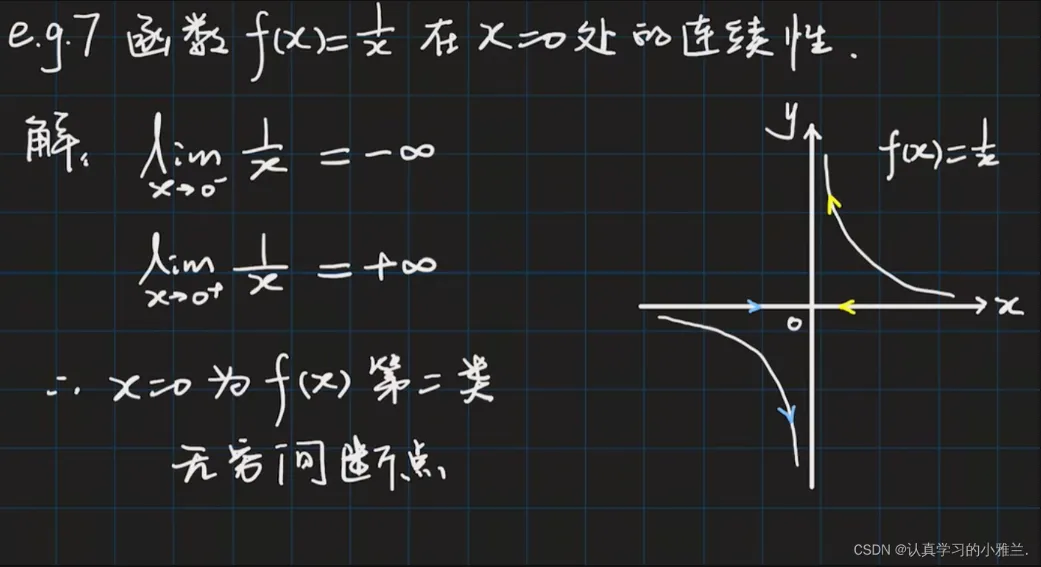 e.g.7 函数 f(x)=1/x 在 x=0 处的连续性.
解: lim x→0⁻ 1/x = -∞
lim x→0⁺ 1/x = +∞
∴ x=0 为 f(x) 第二类
无穷间断点
y
f(x)=1/x
0
x
CSDN @认真学习的小雅兰.